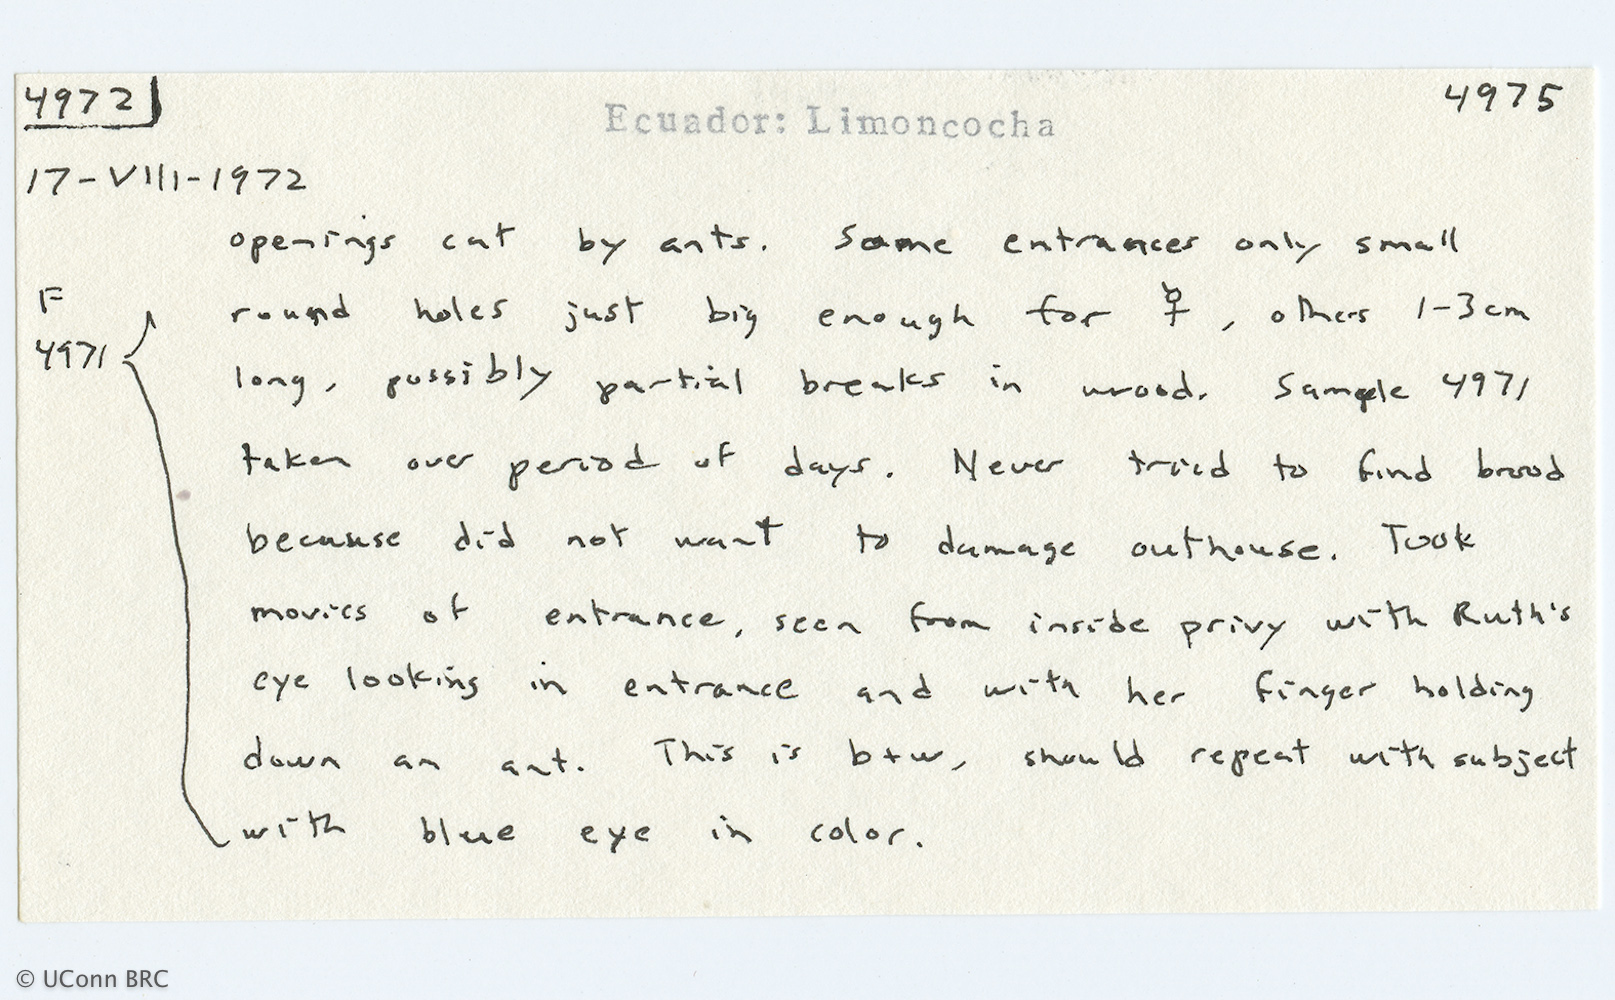 4972 4975
Ecuador: Limoncocha
17-VIII-1972
openings cut by ants. Some entrances only small
F round holes just big enough for ☿, others 1-3cm
4971 long, possibly partial breaks in wood. Sample 4971
taken over period of days. Never tried to find brood
because did not want to damage outhouse. Took
movies of entrance, seen from inside privy with Ruth's
eye looking in entrance and with her finger holding
down an ant. This is b+w, should repeat with subject
with blue eye in color.
© UConn BRC